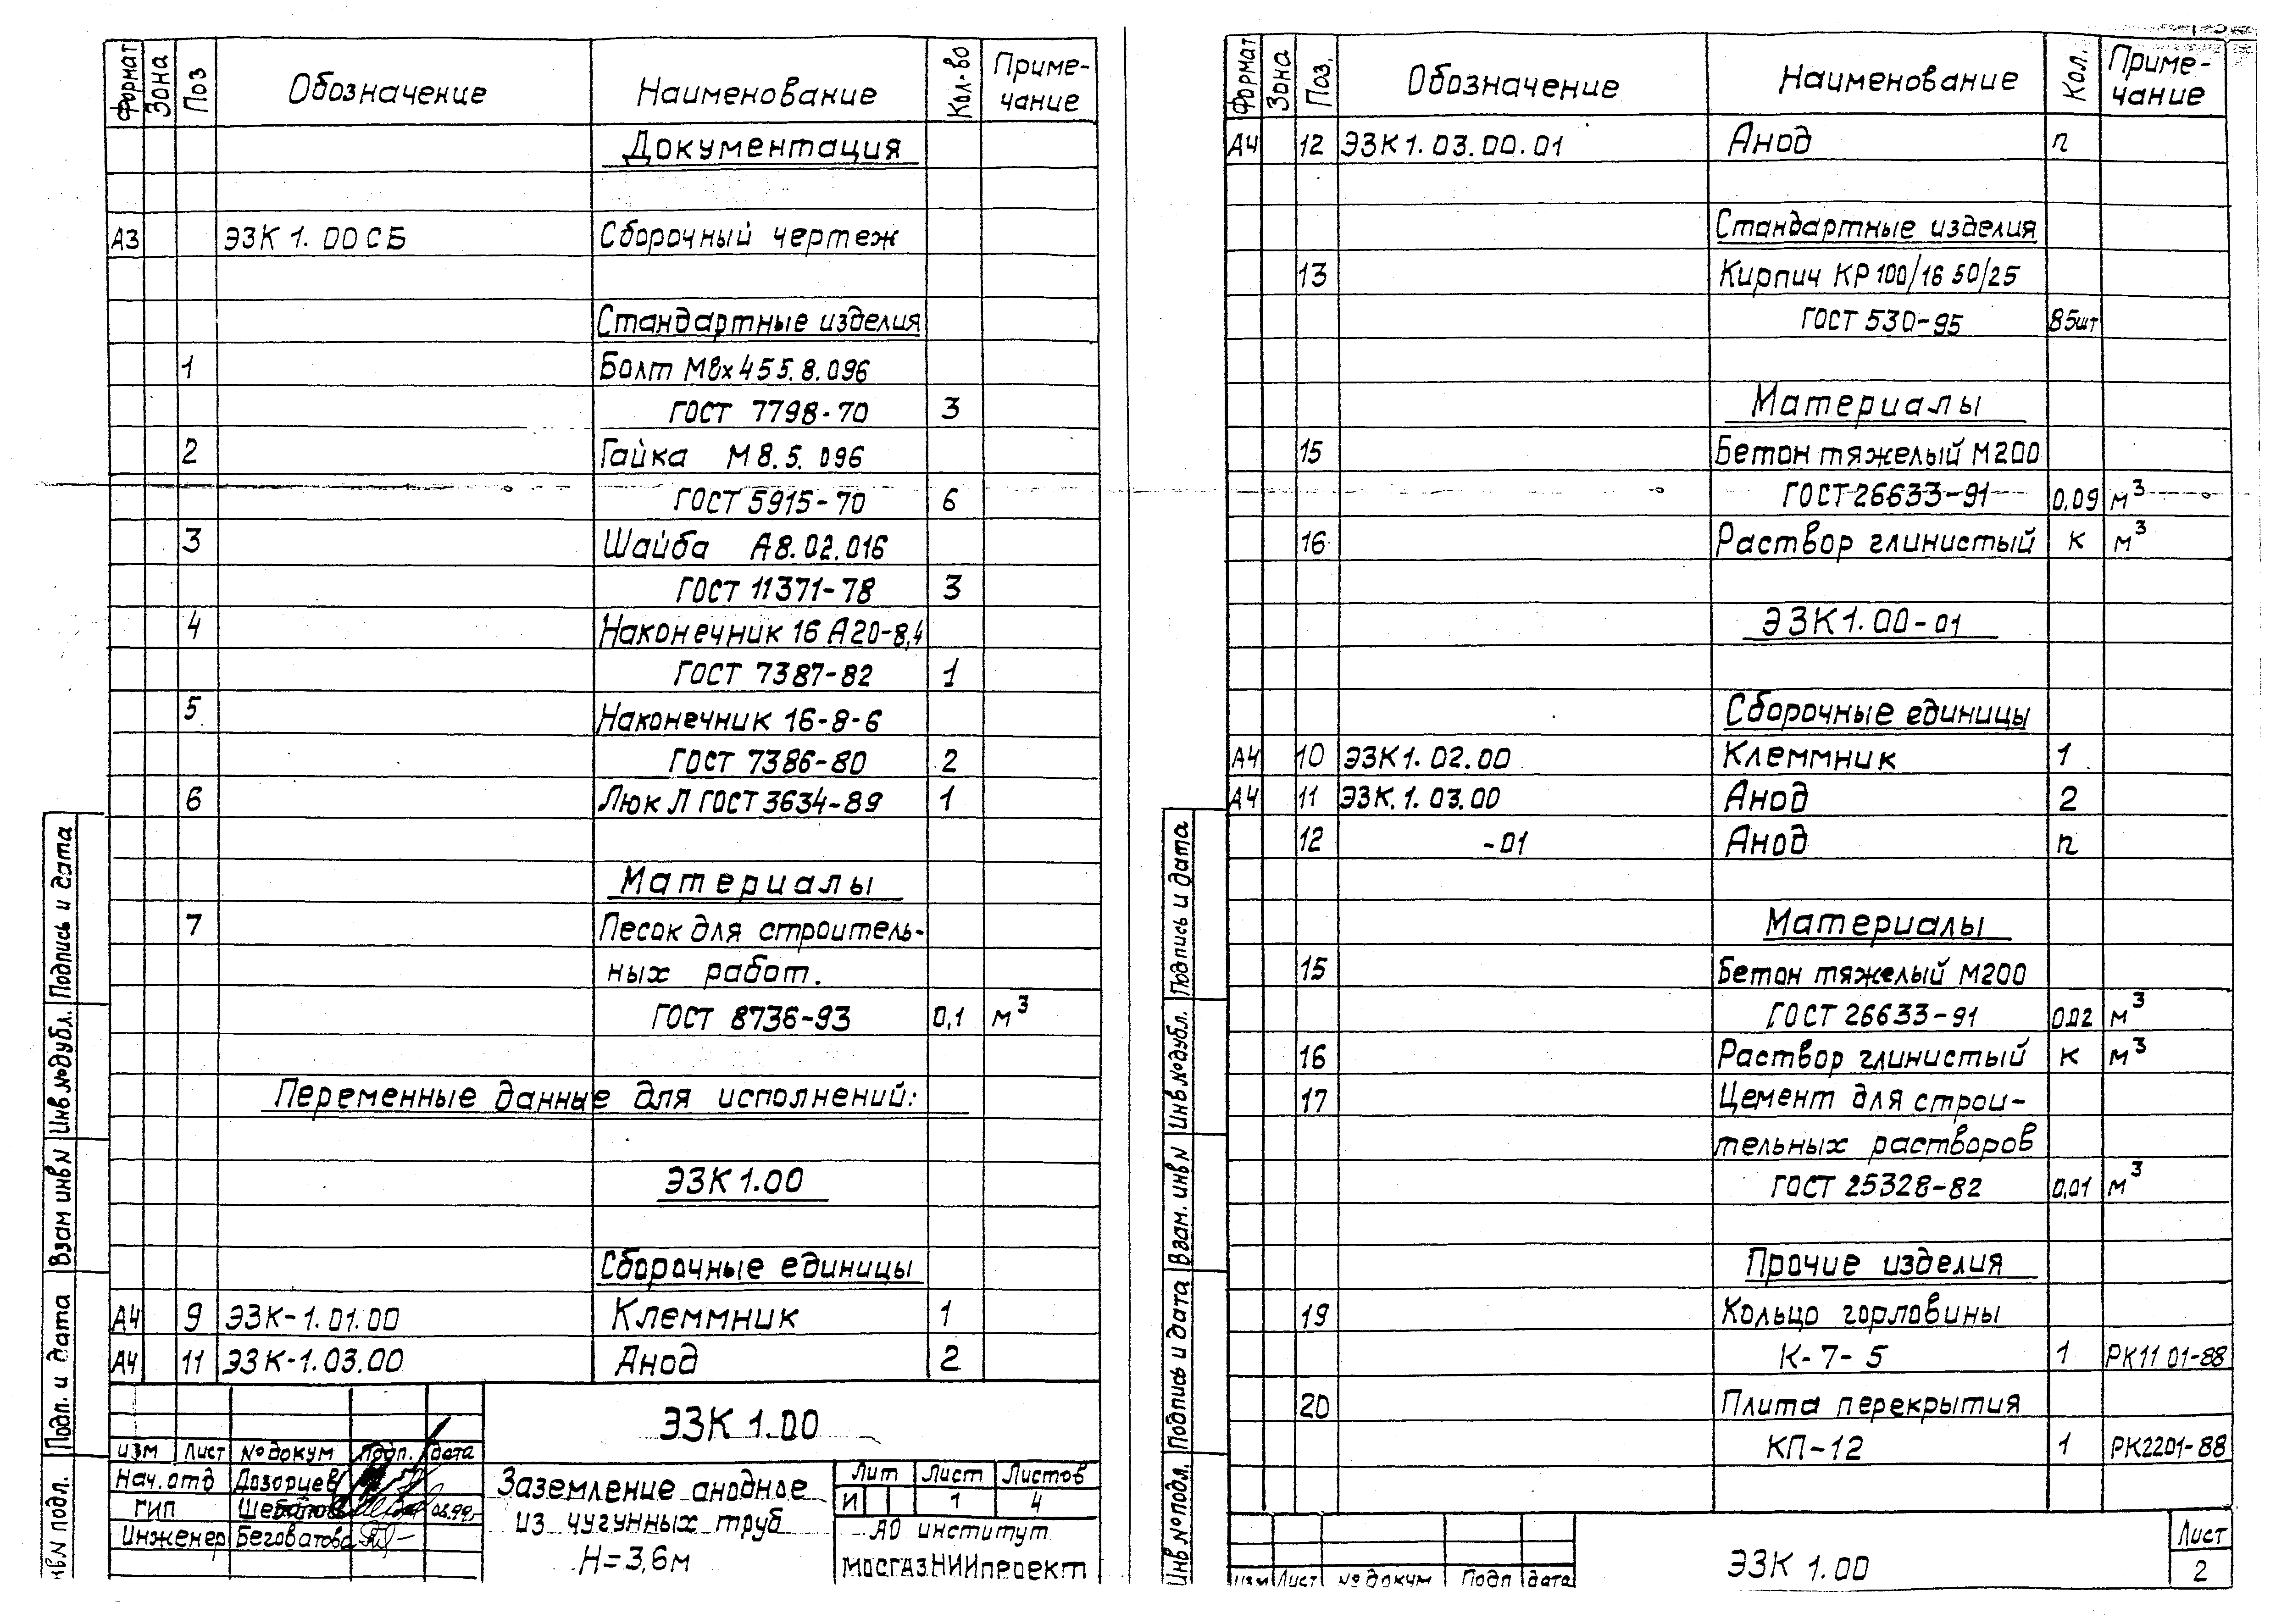 Формат Зона Поз Обозначение Наименование Кол-во Приме-
чание
Документация
А3 ЭЗК 1. 00 СБ Сборочный чертеж
Стандартные изделия
1 Болт М8х455.8.096
ГОСТ 7798-70 3
2 Гайка М8.5.096
ГОСТ 5915-70 6
3 Шайба А8.02.016
ГОСТ 11371-78 3
4 Наконечник 16 А20-8,4
ГОСТ 7387-82 1
5 Наконечник 16-8-6
ГОСТ 7386-80 2
6 Люк Л ГОСТ 3634-89 1
Материалы
7 Песок для строитель-
ных работ.
ГОСТ 8736-93 0,1 м³
Переменные данные для исполнений:
ЭЗК 1.00
Сборочные единицы
А4 9 ЭЗК-1.01.00 Клеммник 1
А4 11 ЭЗК-1.03.00 Анод 2
ЭЗК 1.00
изм Лист № докум Подп. дата
Нач.отд Дозорцев
ГИП
Инженер Беговатова
Заземление анодное
из чугунных труб
Н=3,6м
Лит Лист Листов
И 1 4
АО институт
МОСГАЗНИИпроект
Подпись и дата
Инв № дубл.
Взам инв N
Подп. и дата
Инв N подл.
Формат Зона Поз. Обозначение Наименование Кол. Приме-
чание
А4 12 ЭЗК 1. 03. 00. 01 Анод n
Стандартные изделия
13 Кирпич КР 100/16 50/25
ГОСТ 530-95 85шт
Материалы
15 Бетон тяжелый М200
ГОСТ 26633-91 0,09 м³
16 Раствор глинистый к м³
ЭЗК 1. 00-01
Сборочные единицы
А4 10 ЭЗК 1. 02. 00 Клеммник 1
А4 11 ЭЗК. 1. 03. 00 Анод 2
12 -01 Анод n
Материалы
15 Бетон тяжелый М200
ГОСТ 26633-91 0.02 м³
16 Раствор глинистый к м³
17 Цемент для строи-
тельных растворов
ГОСТ 25328-82 0,01 м³
Прочие изделия
19 Кольцо горловины
К-7-5 1 РК11 01-88
20 Плита перекрытия
КП-12 1 РК2201-88
изм Лист № докум Подп дата
ЭЗК 1.00
Лист
2
Подпись и дата
Инв № дубл.
Взам. инв N
Подпись и дата
Инв № подл.